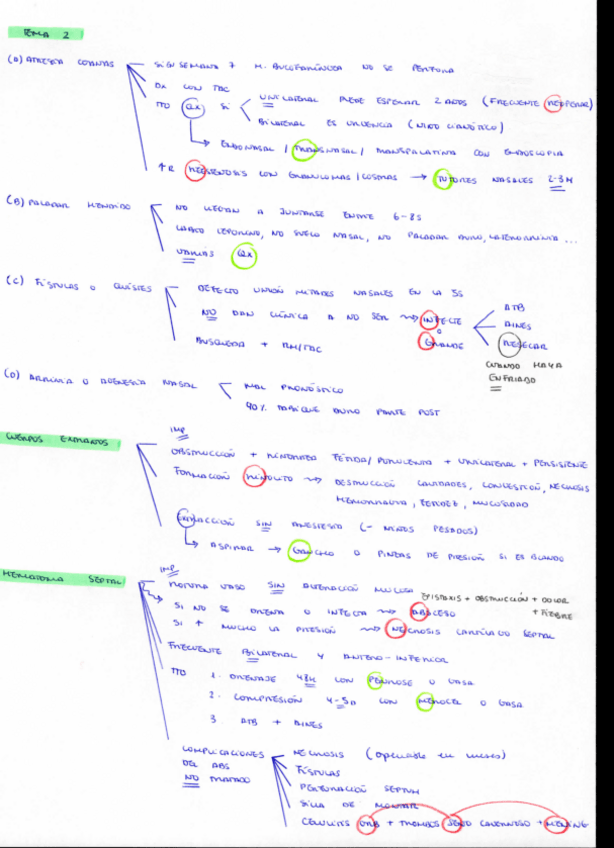 TEMA 2
(A) ATRESIA COANAS
SIGN SEMANA 7 M. BUCOFARÍNGEA NO SE PERFORA
DX CON TAC
TTO QX SI UNILATERAL PUEDE ESPERAR 2 AÑOS (FRECUENTE REOPERAR)
BILATERAL ES URGENCIA (NIÑO CIANÓTICO)
ENDONASAL / TRANSNASAL / TRANSPALATINA CON ENDOSCOPIA
↑R REESTENOSIS CON GRANULOMAS / COSTRAS → TUTORES NASALES 2-3M
(B) PALADAR HENDIDO
NO LLEGAN A JUNTARSE ENTRE 6-8S
LABIO LEPORINO, NO SUELO NASAL, NO PALADAR DURO, LATERORRINIA ...
VARIAS QX
(C) FÍSTULAS O QUISTES
DEFECTO UNIÓN MITADES NASALES EN LA 5S
NO DAN CLÍNICA A NO SER INFECTE
O
GRANDE
ATB
AINES
RESECAR
CUANDO HAYA
ENFRIADO
BUSQUEDA + RM/TAC
(D) ARRINIA O AGENESIA NASAL
MAL PRONÓSTICO
40% TABIQUE DURO PARTE POST
CUERPOS EXTRAÑOS
IMP
OBSTRUCCIÓN + RINORREA FÉTIDA / PURULENTA + UNILATERAL + PERSISTENTE
FORMACIÓN RINOLITO DESTRUCCIÓN CAVIDADES, CONGESTIÓN, NECROSIS
HEMORRAGIA, FETIDEZ, MUCOSIDAD
EXTRACCIÓN SIN ANESTESIA (- NIÑOS PESADOS)
ASPIRAR → GANCHO O PINZAS DE PRESIÓN SI ES BLANDO
HEMATOMA SEPTAL
IMP
ROTURA VASO SIN ALTERACIÓN MUCOSA
SI NO SE DRENA O INFECTA ABSCESO
EPISTAXIS + OBSTRUCCIÓN + DOLOR
+ FIEBRE
SI + MUCHO LA PRESIÓN NECROSIS CARTÍLAGO SEPTAL
FRECUENTE BILATERAL Y ANTERO-INFERIOR
TTO 1. DRENAJE 48H CON PENROSE O GASA
2. COMPRESIÓN 4-5D CON MEROCEL O GASA
3 ATB + AINES
COMPLICACIONES
DEL ABS
NO TRATADO
NECROSIS (operable en meses)
FÍSTULAS
PERFORACIÓN SEPTUM
SILLA DE MONTAR
CELULITIS ORB + TROMBOS SENO CAVERNOSO + MENING